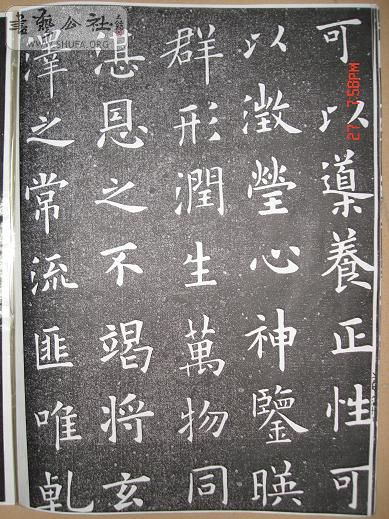 可以導養正性可
以澂瑩心神鑒暎
群形潤生萬物同
湛恩之不竭將玄
澤之常流匪唯乾
書藝公社
WWW.SHUFA.ORG
2:58PM